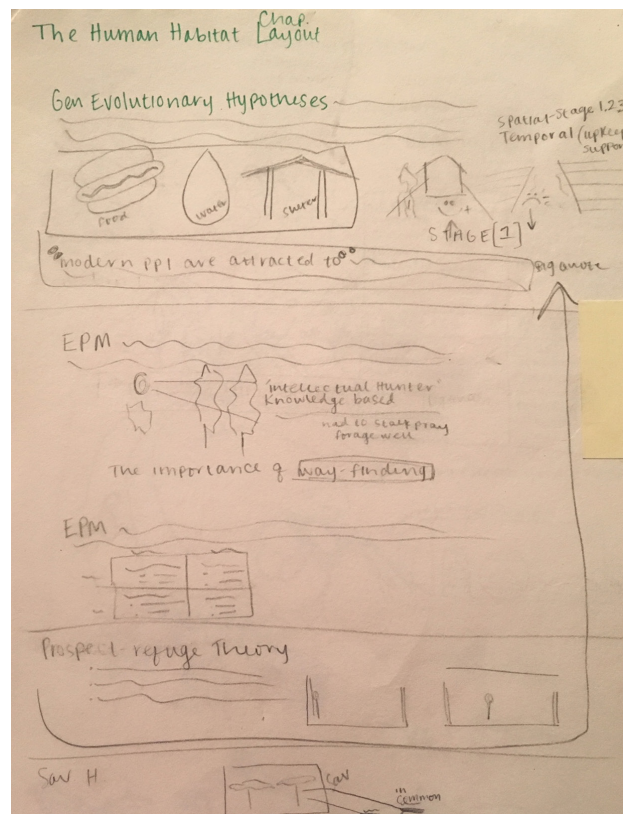 The Human Habitat Chap. Layout
Gen Evolutionary Hypotheses
Spatial-Stage 1,2,3
Temporal/upkeep
support
Food
water
shelter
STAGE[1]
"modern ppl are attracted to"
org quote
EPM
'intellectual Hunter'
Knowledge based
had to stalk pray
forage well
The importance of way-finding
EPM
Prospect-refuge Theory
Sav H
Sav
in
common